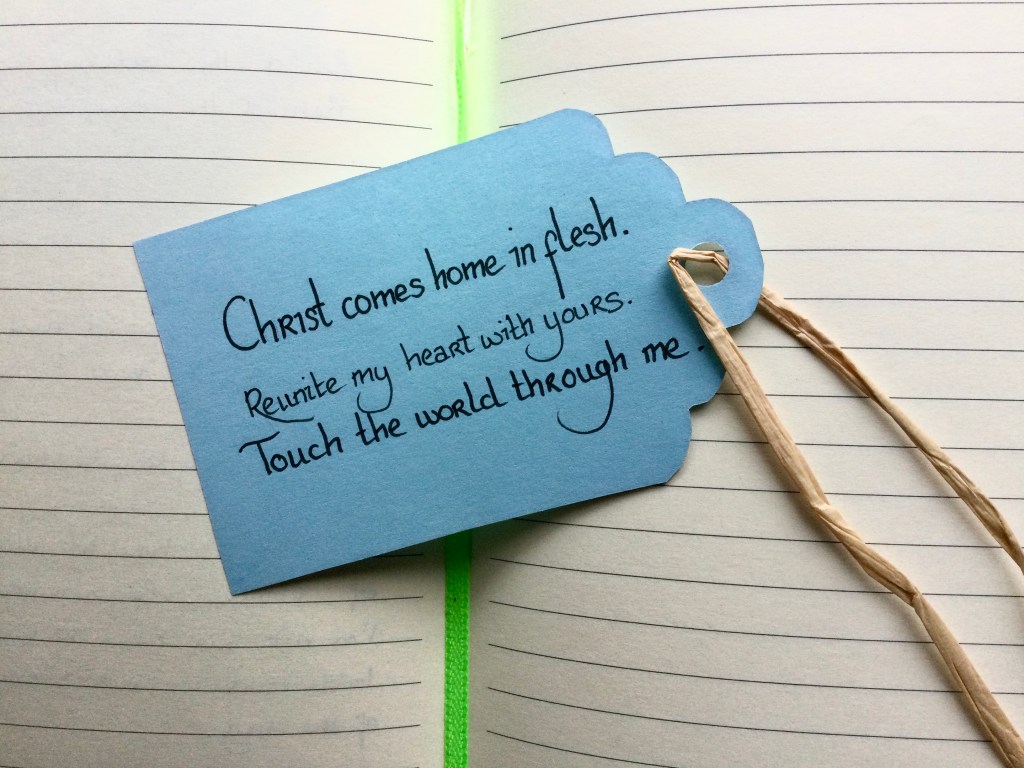 Christ comes home in flesh.
Reunite my heart with yours.
Touch the world through me.